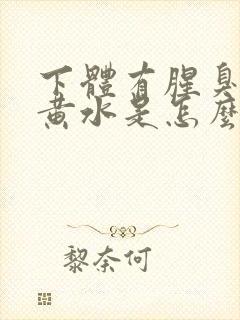 下體有腥臭
黄水是怎麼
黎奈何